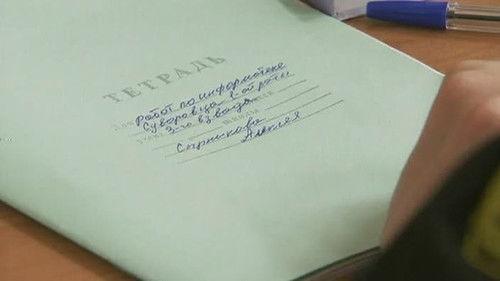 ТЕТРАДЬ
Для Работ по информатике
Суворовца 6 ой роты
3-го взвода
Сырникова
Алексея